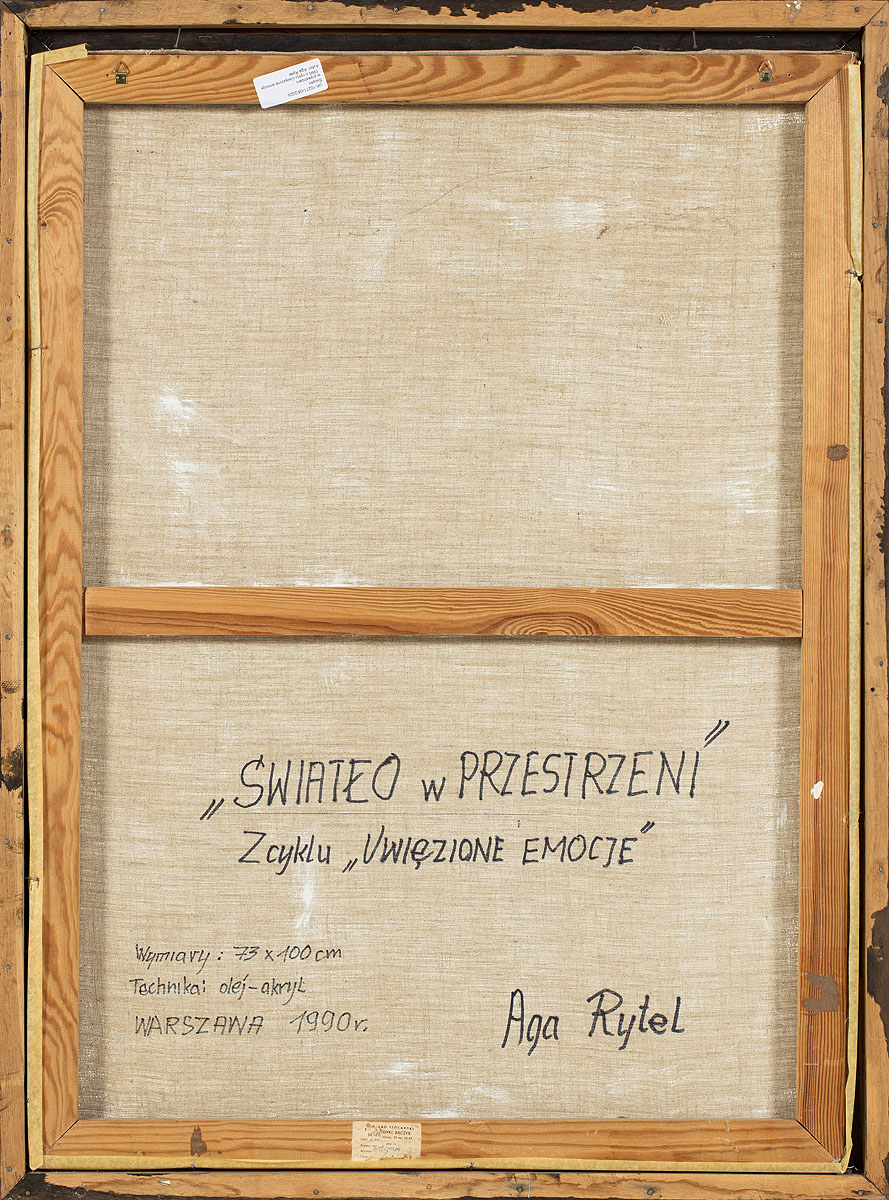 „ŚWIATŁO w PRZESTRZENI”
Z cyklu „UWIĘZIONE EMOCJE”
Wymiary: 73 x 100 cm
Technika: olej-akryl
WARSZAWA 1990 r.
Aga Rytel